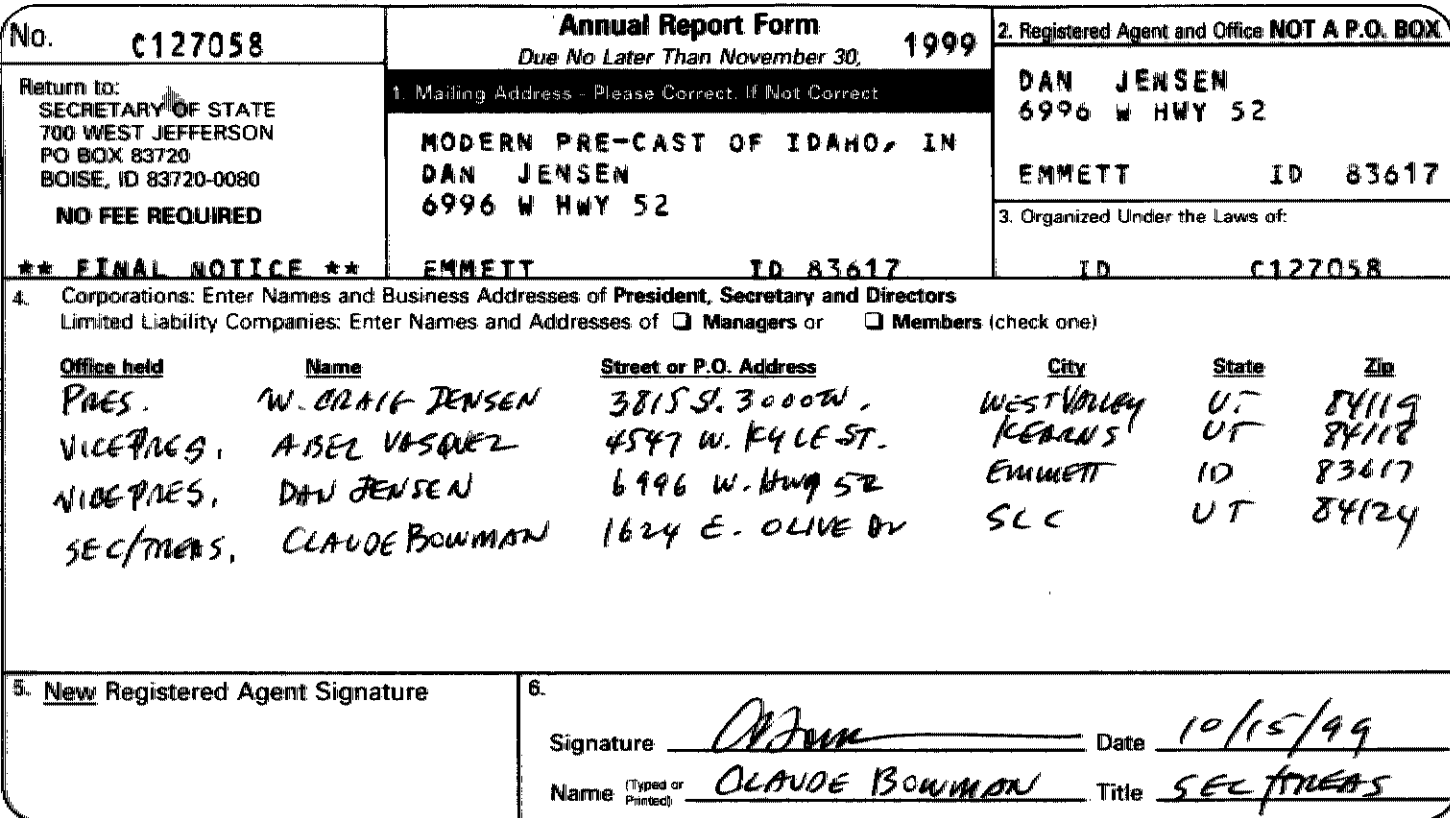 No. C127058
Return to:
SECRETARY OF STATE
700 WEST JEFFERSON
PO BOX 83720
BOISE, ID 83720-0080
NO FEE REQUIRED
** FINAL NOTICE **
Annual Report Form 1999
Due No Later Than November 30,
1. Mailing Address - Please Correct. If Not Correct
MODERN PRE-CAST OF IDAHO, IN
DAN JENSEN
6996 W HWY 52
EMMETT ID 83617
2. Registered Agent and Office NOT A P.O. BOX
DAN JENSEN
6996 W HWY 52
EMMETT ID 83617
3. Organized Under the Laws of:
ID C127058
4. Corporations: Enter Names and Business Addresses of President, Secretary and Directors
Limited Liability Companies: Enter Names and Addresses of ❏ Managers or ❏ Members (check one)
Office held Name Street or P.O. Address City State Zip
PRES. W. CRAIG JENSEN 3815 S. 3000 W. WEST VALLEY UT 84119
VICE PRES. ABEL VASQUEZ 4547 W. KYLE ST. KEARNS UT 84118
VICE PRES. DAN JENSEN 6996 W. Hwy 52 EMMETT ID 83617
SEC/TREAS. CLAUDE BOWMAN 1624 E. OLIVE DR SLC UT 84124
5. New Registered Agent Signature
6.
Signature Date 10/15/99
Name (Typed or Printed) CLAUDE BOWMAN Title SEC/TREAS